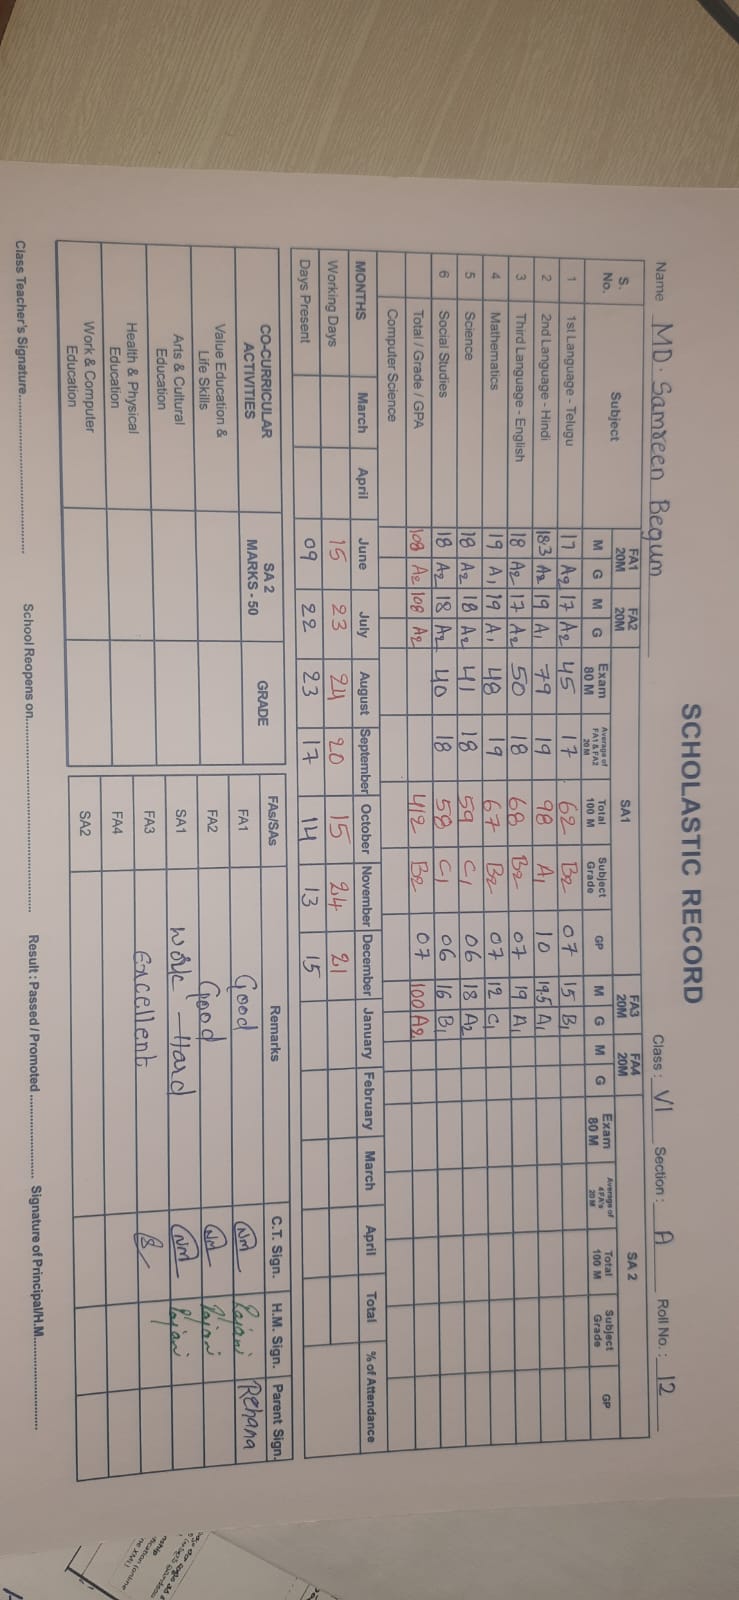 SCHOLASTIC RECORD
Name MD. Samreen Begum Class : VI Section : A Roll No. : 12
S. No. Subject FA1 20M FA2 20M SA1 FA3 20M FA4 20M SA 2
M G M G Exam 80 M Average of FA1 & FA2 20 M Total 100 M Subject Grade GP M G M G Exam 80 M Average of 4 FA's 20 M Total 100 M Subject Grade GP
1 1st Language - Telugu 17 A2 17 A2 45 17 62 B2 07 15 B1
2 2nd Language - Hindi 18.3 A2 19 A1 79 19 98 A1 10 19.5 A1
3 Third Language - English 18 A2 17 A2 50 18 68 B2 07 19 A1
4 Mathematics 19 A1 19 A1 48 19 67 B2 07 12 C1
5 Science 18 A2 18 A2 41 18 59 C1 06 18 A2
6 Social Studies 18 A2 18 A2 40 18 58 C1 06 16 B1
Total / Grade / GPA 108 A2 108 A2 412 B2 07 100 A2
Computer Science
MONTHS March April June July August September October November December January February March April Total % of Attendance
Working Days 15 23 24 20 15 24 21
Days Present 09 22 23 17 14 13 15
CO-CURRICULAR ACTIVITIES SA 2 MARKS - 50 GRADE
Value Education & Life Skills
Arts & Cultural Education
Health & Physical Education
Work & Computer Education
FAs/SAs Remarks C.T. Sign. H.M. Sign. Parent Sign.
FA1 Good Rajani Rehana
FA2 Good Rajani
SA1 Work Hard Rajani
FA3 Excellent
FA4
SA2
Class Teacher's Signature.............................. School Reopens on.............................. Result : Passed / Promoted .................... Signature of Principal/H.M....................